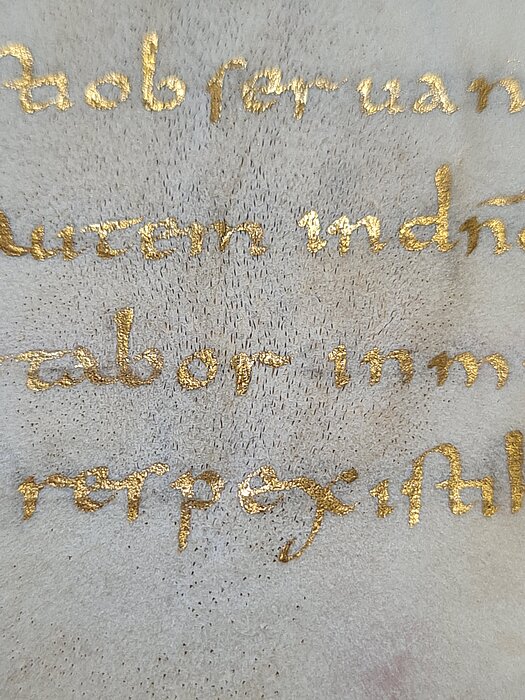 taobseruan
autem indn̄o
tabor inm
respexistih